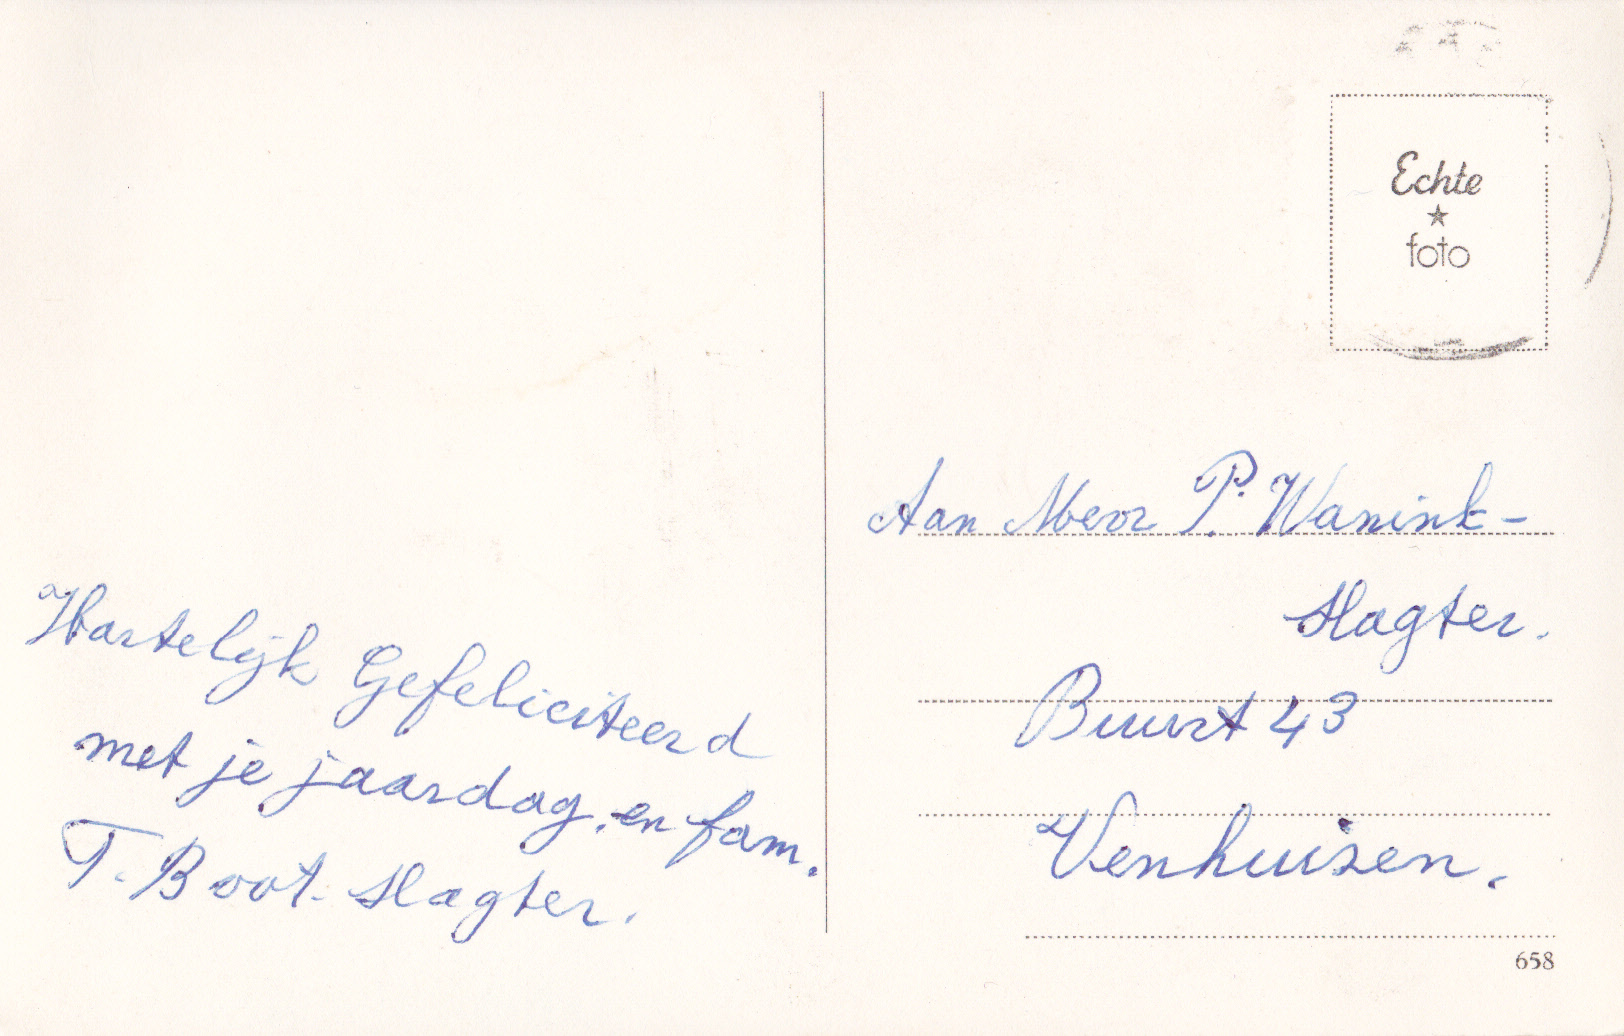 Echte
foto
Aan Mevr P. Wanink-
Slagter.
Buurt 43
Venhuizen.
Hartelijk Gefeliciteerd
met je jaardag, en fam.
T. Boot-Slagter.
658